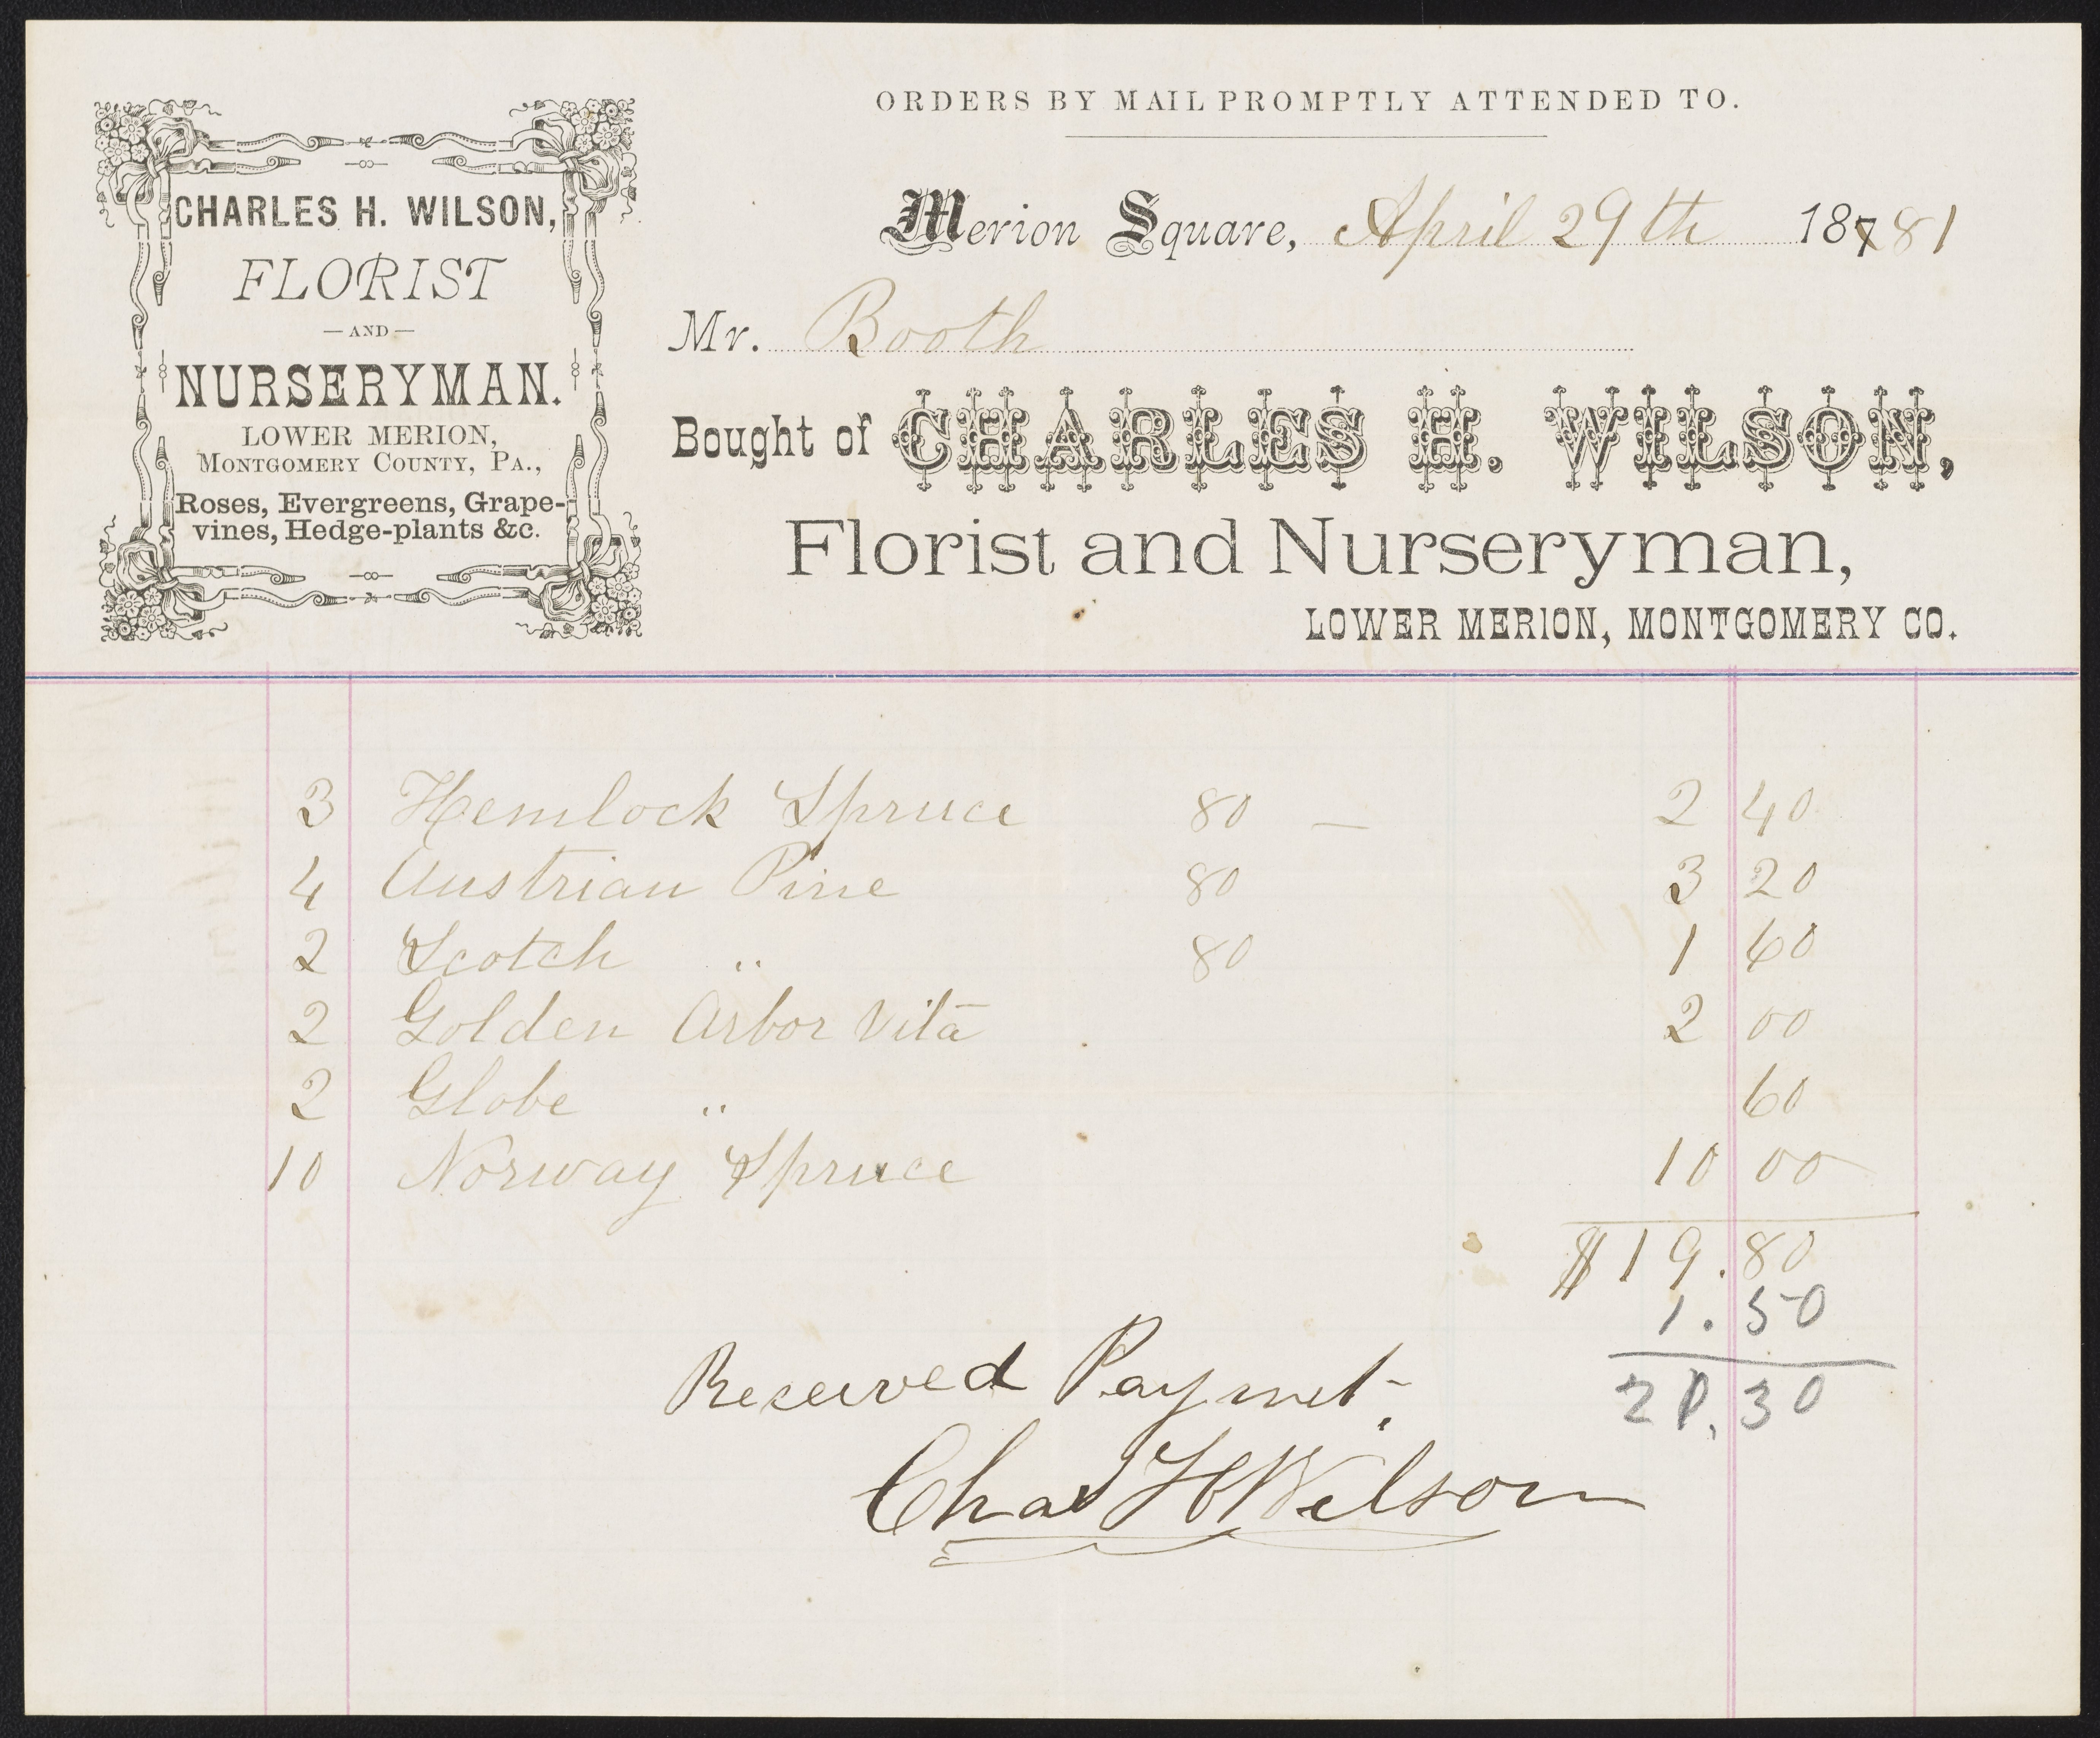 CHARLES H. WILSON,
FLORIST
—AND—
NURSERYMAN.
LOWER MERION,
MONTGOMERY COUNTY, PA.,
Roses, Evergreens, Grape-
vines, Hedge-plants &c.
ORDERS BY MAIL PROMPTLY ATTENDED TO.
Merion Square, April 29th 18781
Mr. Booth
Bought of CHARLES H. WILSON,
Florist and Nurseryman,
LOWER MERION, MONTGOMERY CO.
3 Hemlock Spruce 80 — 2 40
4 Austrian Pine 80 3 20
2 Scotch " 80 1 60
2 Golden Arbor Vita 2 00
2 Globe " 60
10 Norway Spruce 10 00
$19.80
1.50
21.30
Received Paymet.
Chas H Wilson